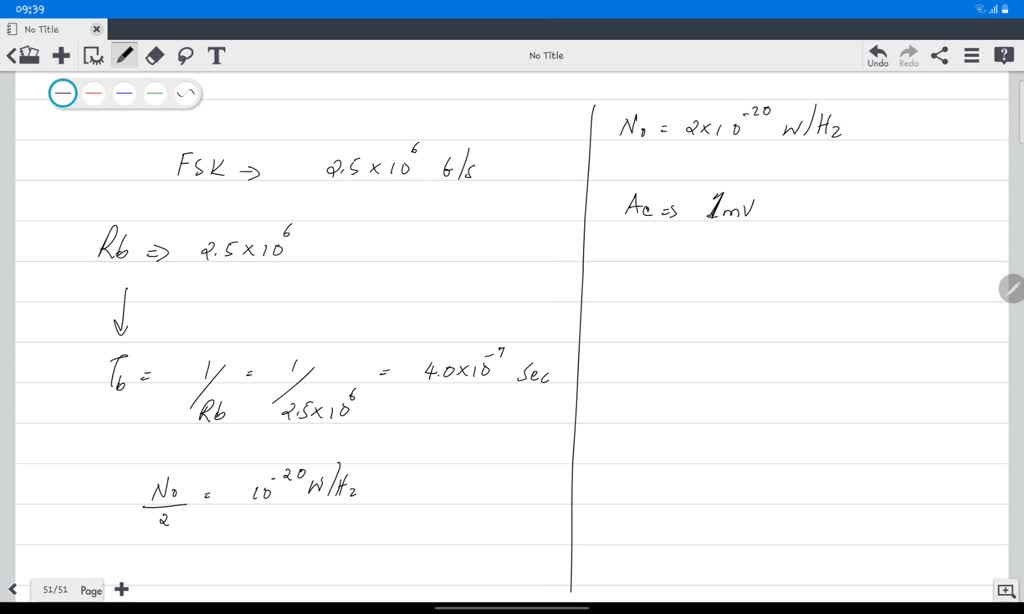 09:39
No Title
T
No Title
Undo
Redo
FSK ⇒ 2.5 × 10^6 b/s
Rb ⇒ 2.5 × 10^6
↓
T_b = 1/Rb = 1/2.5×10^6 = 4.0×10^-7 Sec
N_0/2 = 10^-20 W/Hz
N_0 = 2×10^-20 W/Hz
Ac ⇒ 1mV
51/51 Page